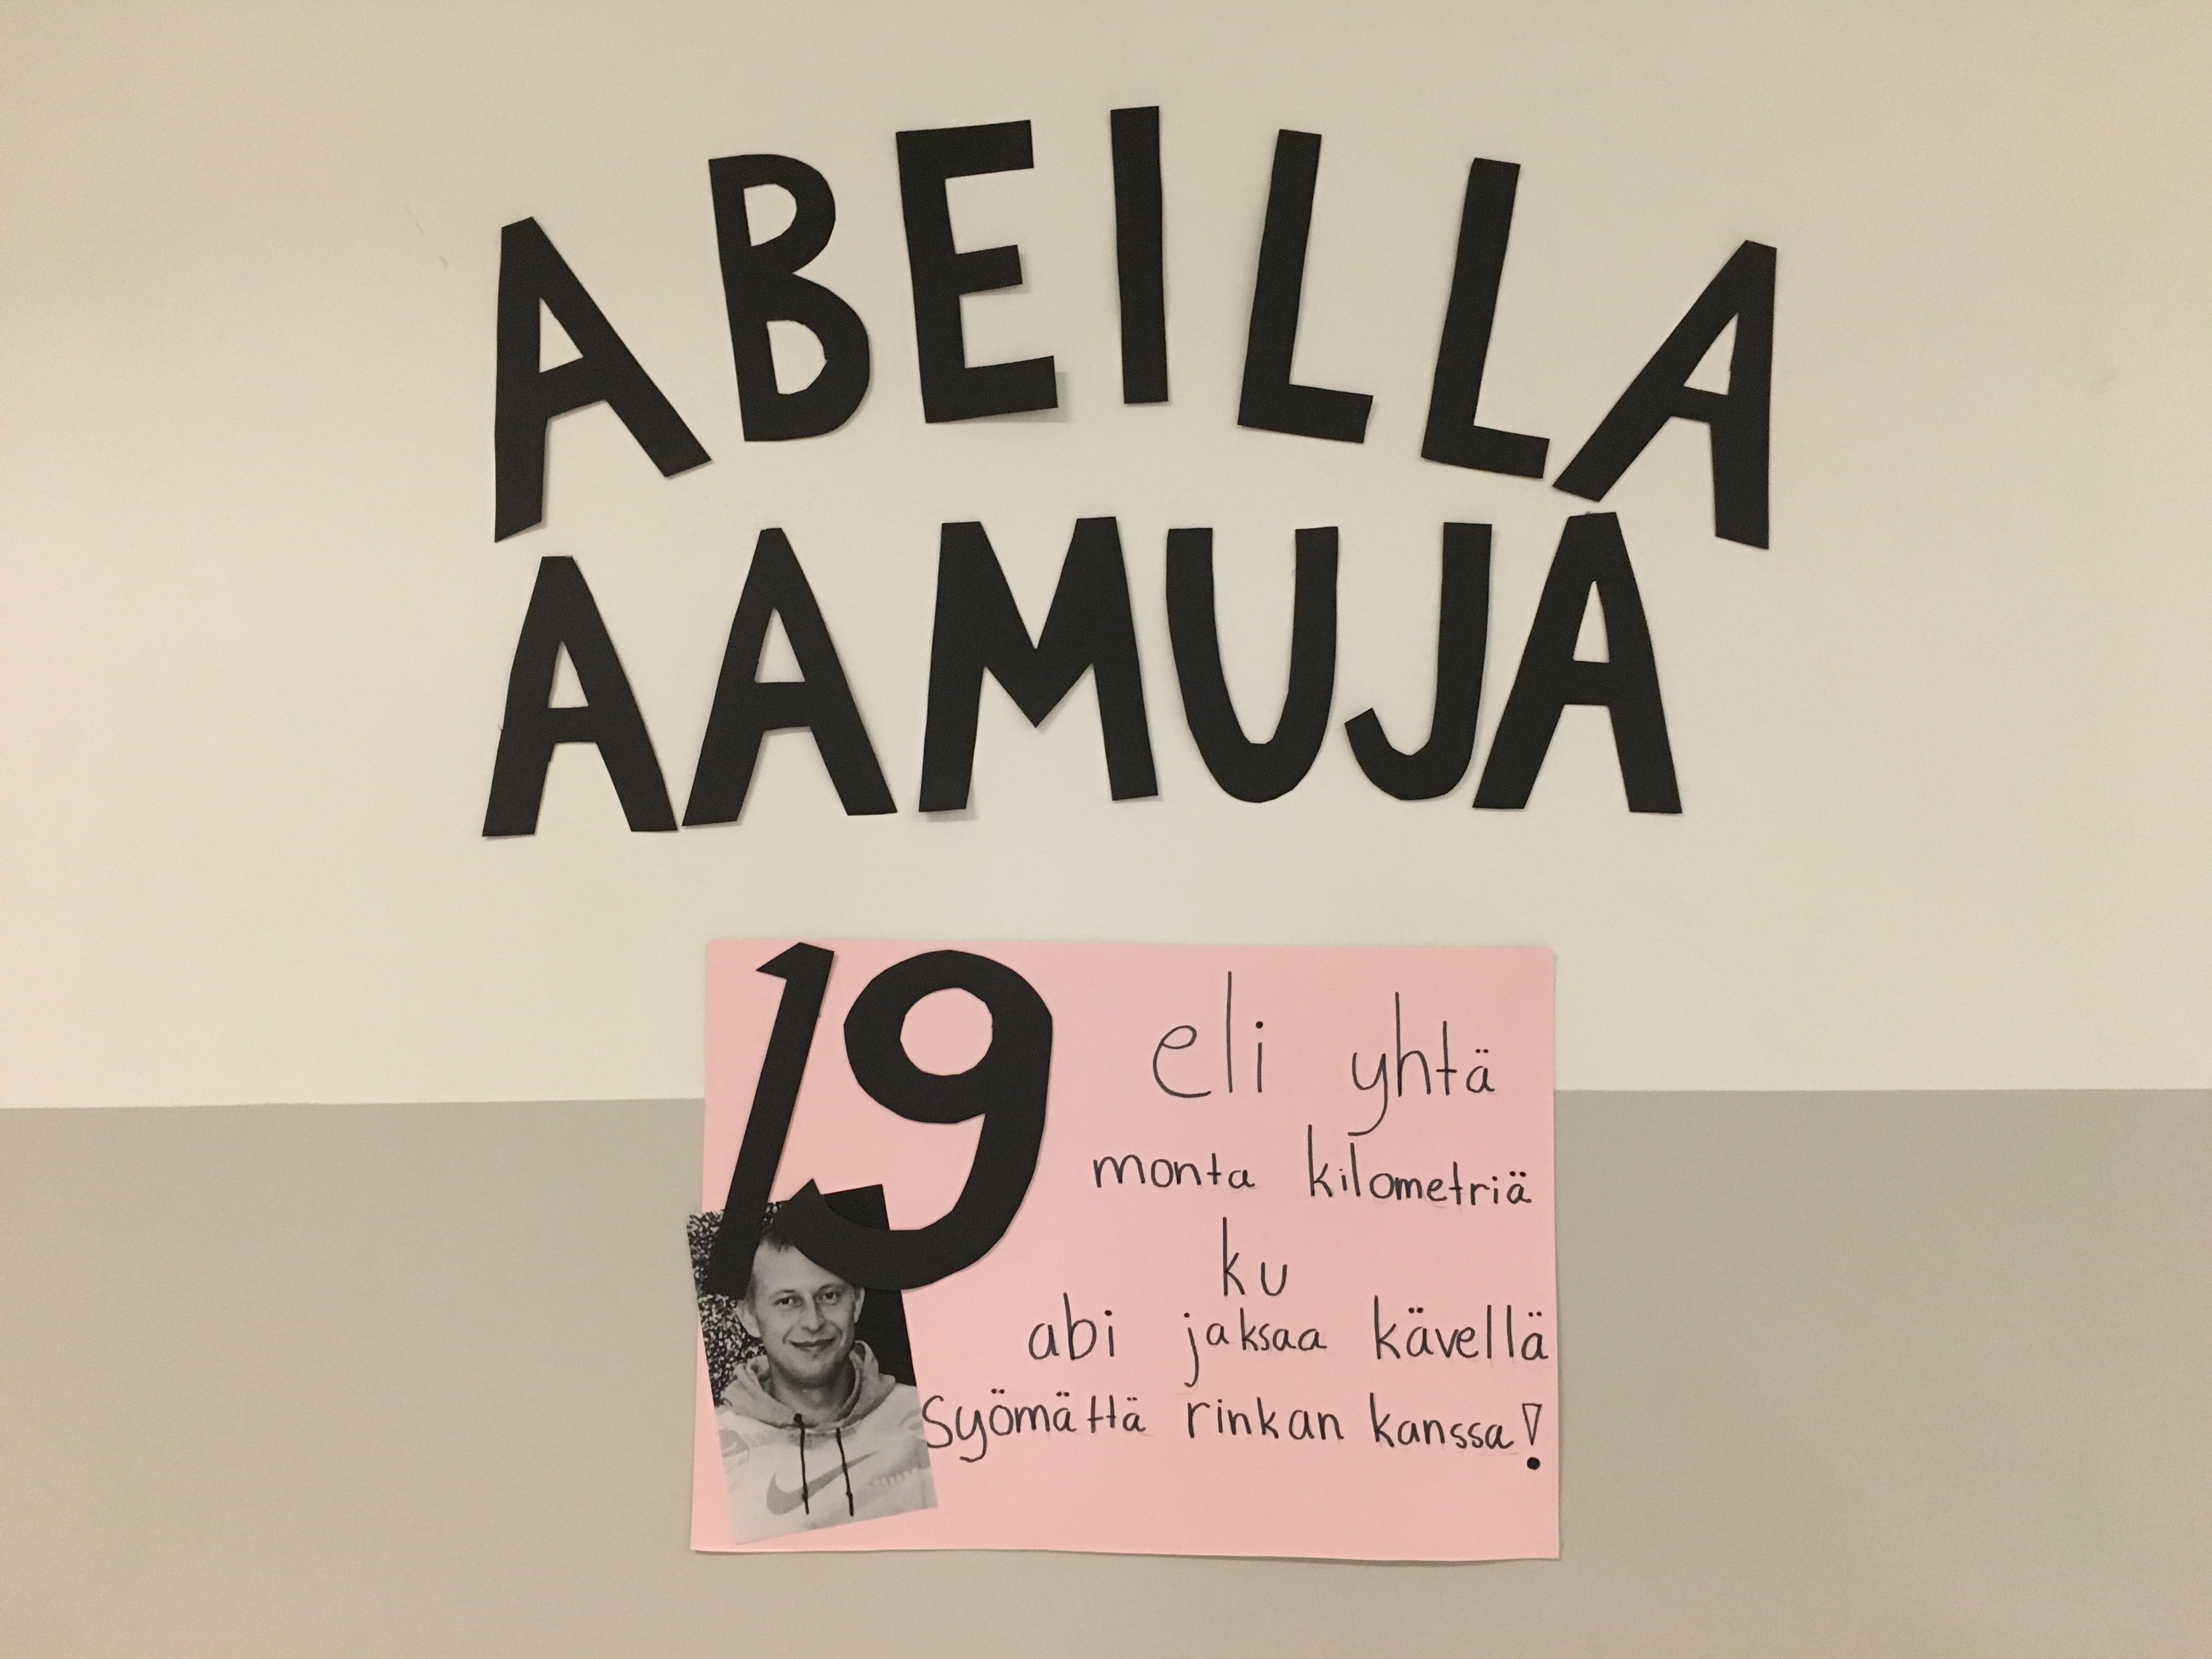 ABEILLA
AAMUJA
19 eli yhtä
monta kilometriä
ku
abi jaksaa kävellä
syömättä rinkan kanssa!